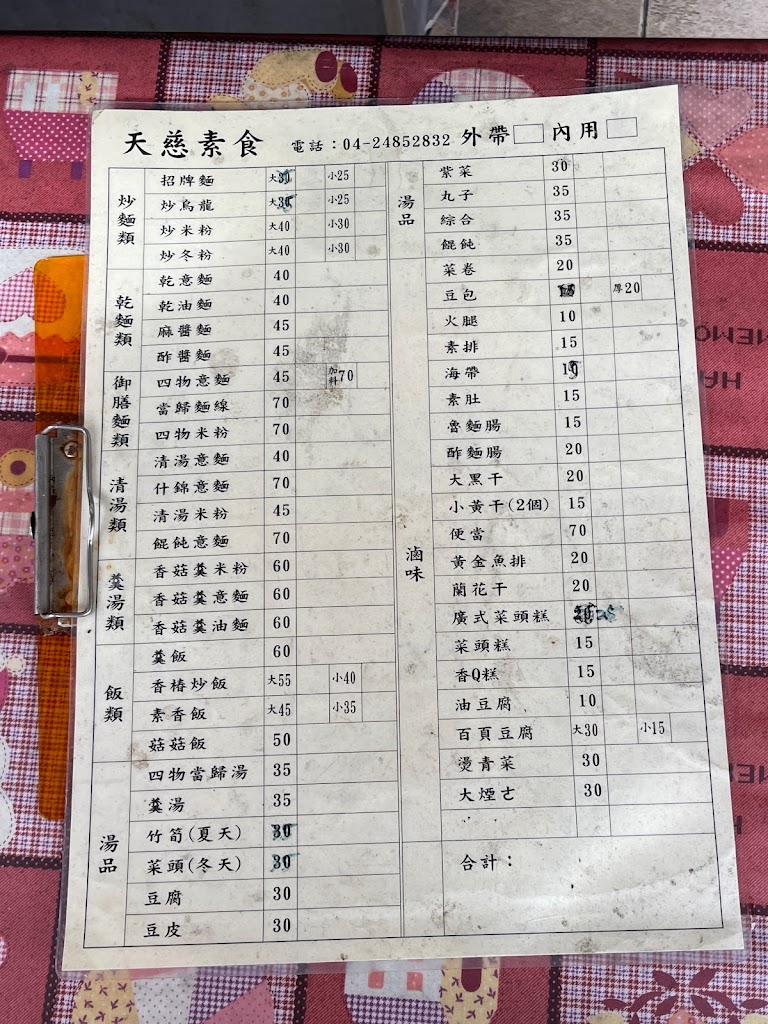 天慈素食 電話：04-24852832 外帶 內用
炒麵類
招牌麵 大30 小25
炒烏龍 大30 小25
炒米粉 大40 小30
炒冬粉 大40 小30
乾麵類
乾意麵 40
乾油麵 40
麻醬麵 45
酢醬麵 45
御膳麵類
四物意麵 45 加料70
當歸麵線 70
四物米粉 70
清湯類
清湯意麵 40
什錦意麵 70
清湯米粉 45
餛飩意麵 70
羹湯類
香菇羹米粉 60
香菇羹意麵 60
香菇羹油麵 60
飯類
羹飯 60
香椿炒飯 大55 小40
素香飯 大45 小35
菇菇飯 50
湯品
四物當歸湯 35
羹湯 35
竹筍(夏天) 30
菜頭(冬天) 30
豆腐 30
豆皮 30
湯品
紫菜 30
丸子 35
綜合 35
餛飩 35
滷味
菜卷 20
豆包 厚20
火腿 10
素排 15
海帶
素肚 15
魯麵腸 15
酢麵腸 20
大黑干 20
小黃干(2個) 15
便當 70
黃金魚排 20
蘭花干 20
廣式菜頭糕
菜頭糕 15
香Q糕 15
油豆腐 10
百頁豆腐 大30 小15
燙青菜 30
大煙古 30
合計：
HA